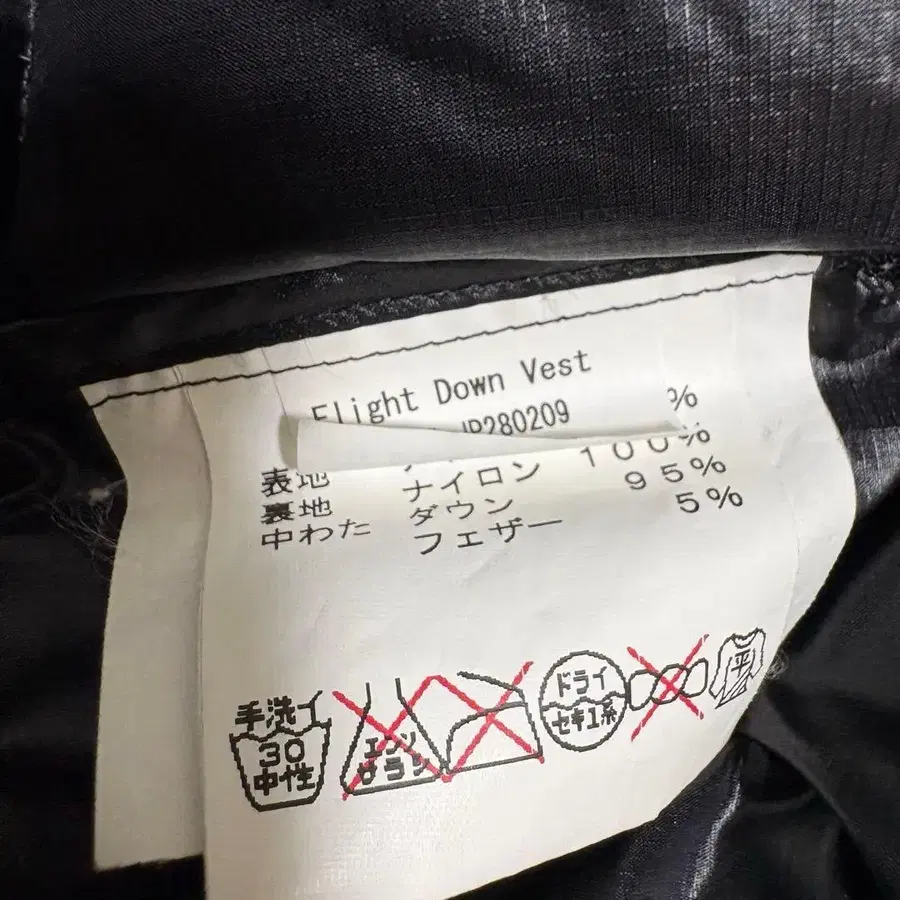 Flight Down Vest
JP280209
表地 %
裏地 ナイロン 100%
中わた ダウン 95%
フェザー 5%
手洗イ
30
中性
エンソ
サラシ
ドライ
セキユ系
平